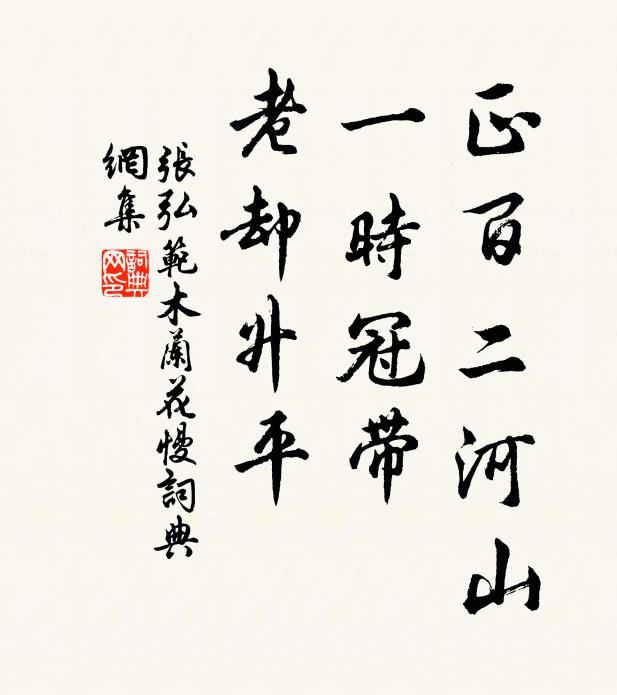 正百二河山
一時冠帶
老却升平
張弘範木蘭花慢詞典
網集
詞典
网印